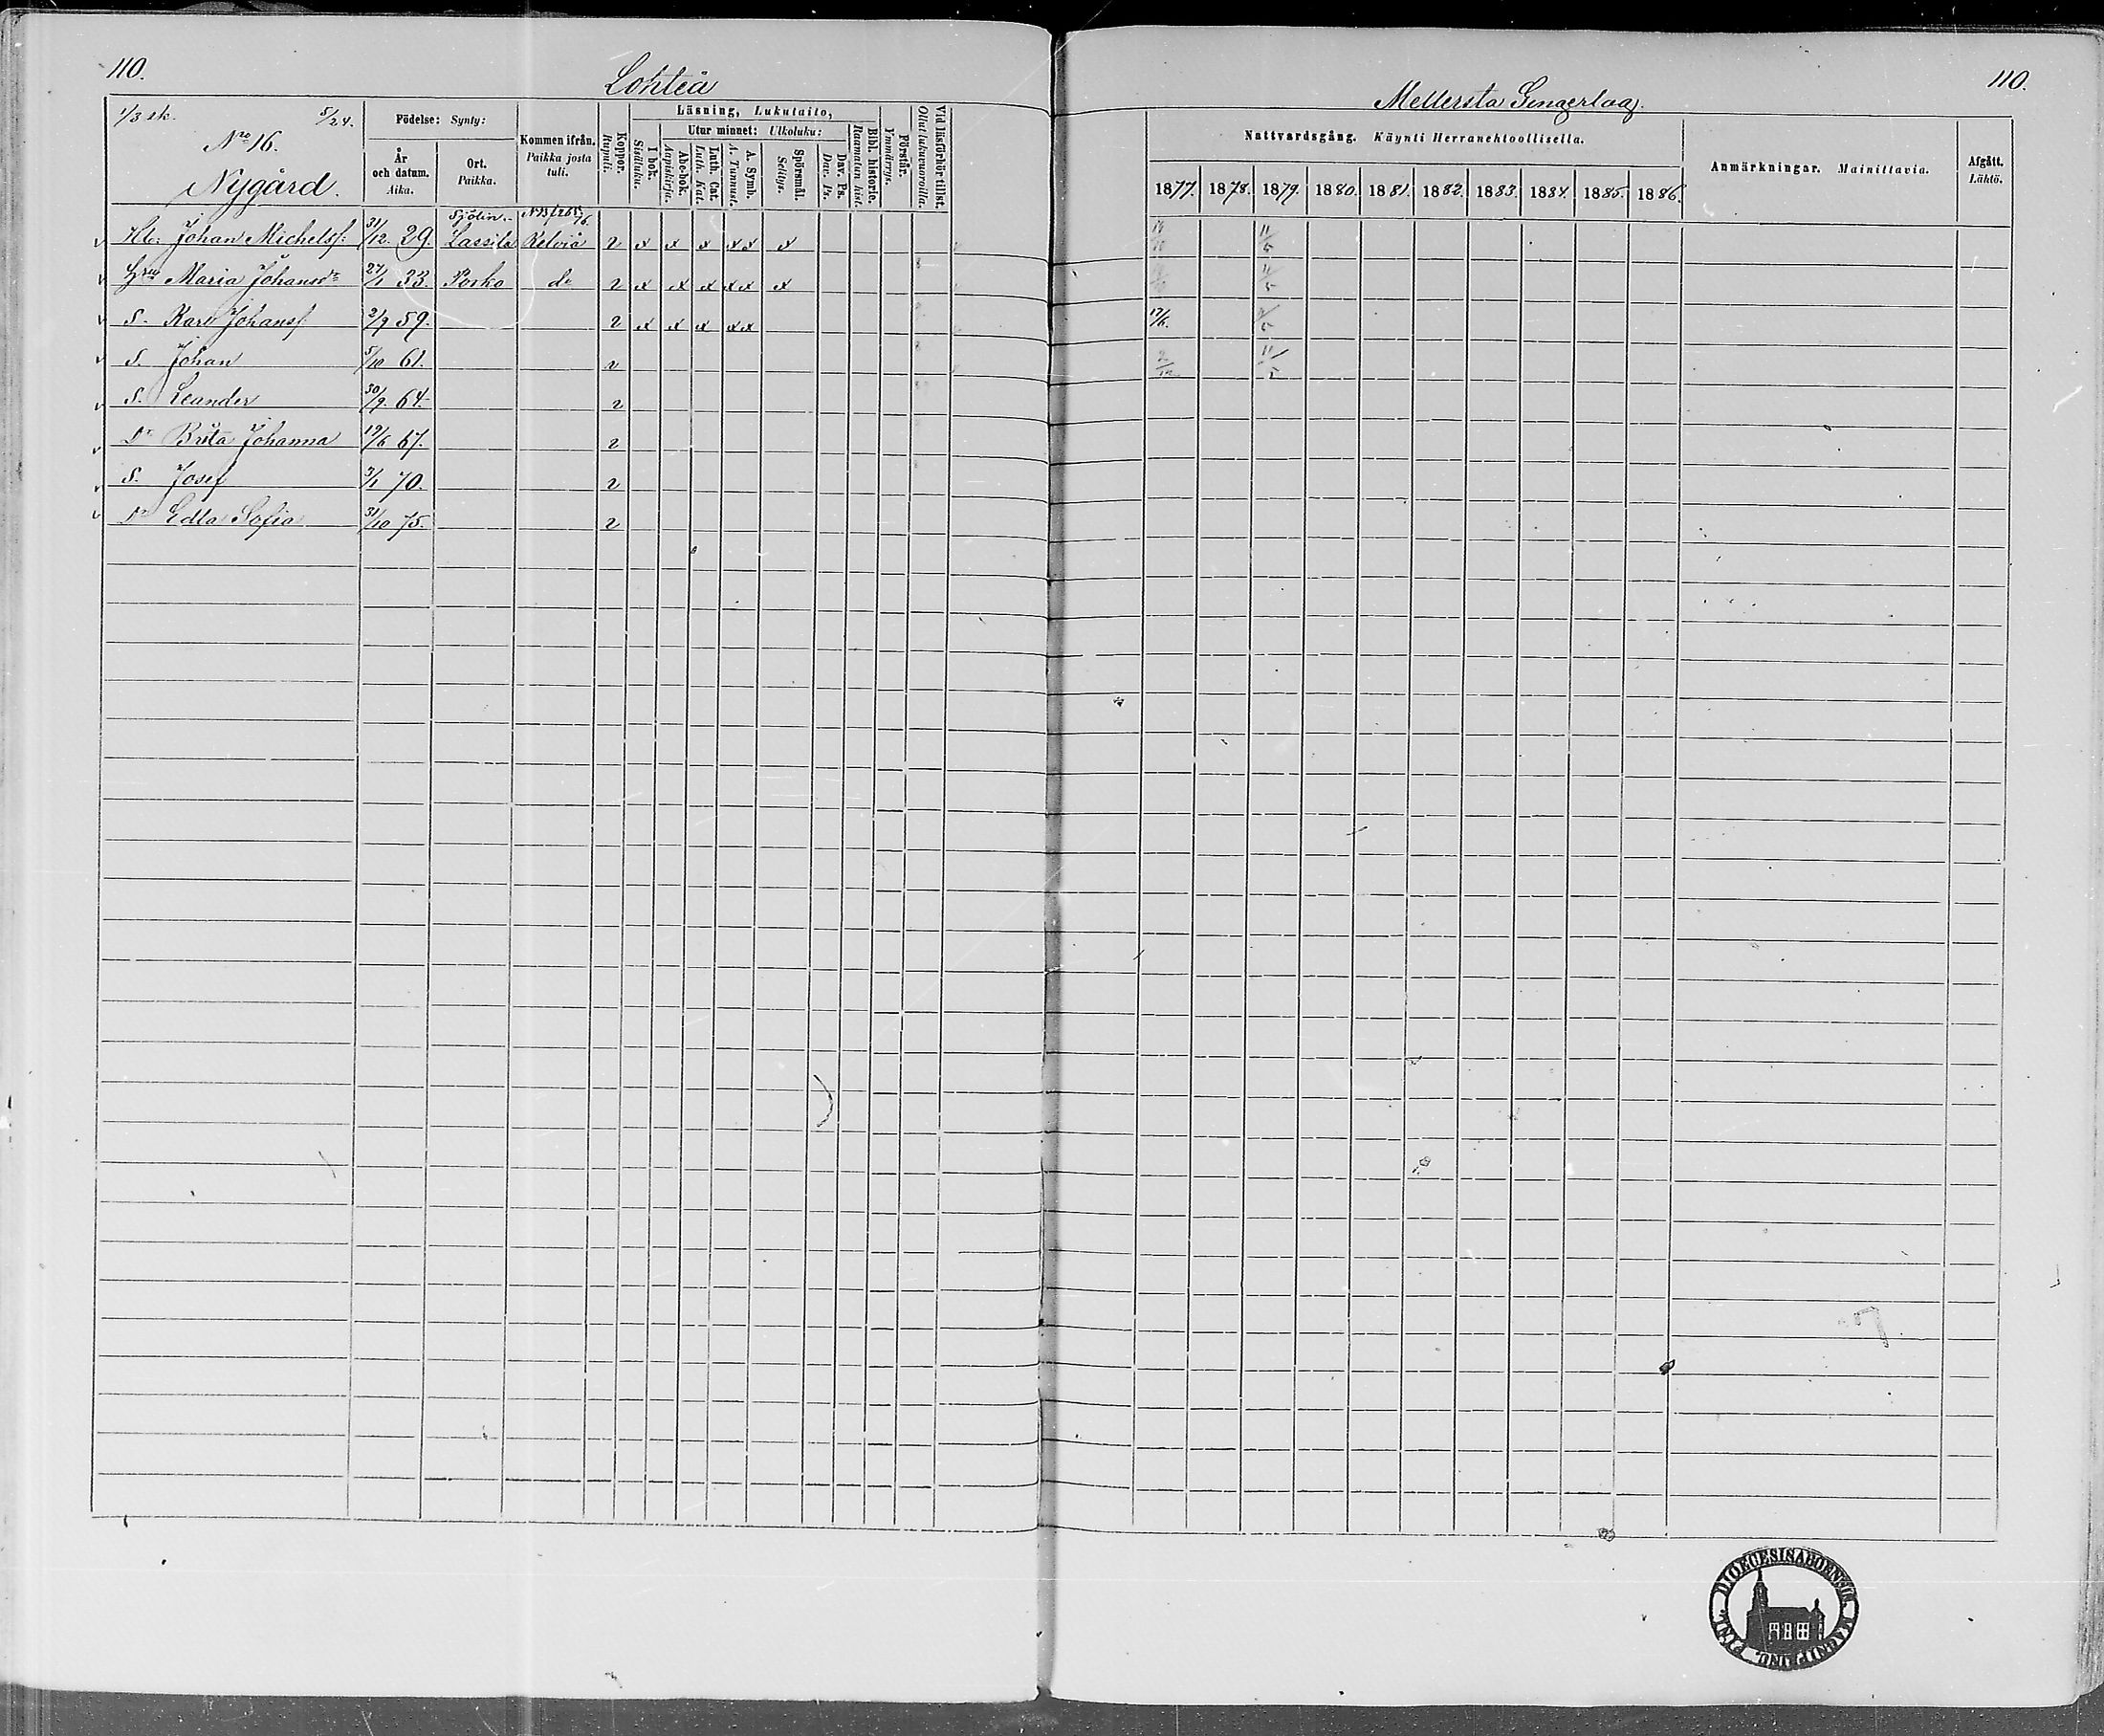 110.
Lohteå
Mellersta
110.
1/3 sk. 5/24.
Nro 16.
Nygård.
Födelse: Synty:
År och datum. Aika.
Ort. Paikka.
Kommen ifrån. Paikka josta tuli.
Koppor. Rupuli.
Läsning, Lukutaito,
I bok. Sisäluku.
Utur minnet: Ulkoluku:
Abc-bok. Aapiskirja.
Luth. Cat. Luth. Kat.
A. Symb. A. Tunnust.
Spörsmål. Selitys.
Dav. Ps. Dav. Ps.
Bibl. historie. Raamatun hist.
Förstår. Ymmärrys.
Vid läsförhör tillst. Ollut lukuvuoroilla.
Nattvardsgång. Käynti Herranehtoollisella.
1877. 1878. 1879. 1880. 1881. 1882. 1883. 1884. 1885. 1886.
Anmärkningar. Mainittavia.
Afgått. Lähtö.
Johan Michelsf: 31/12. 29. Lassila Kelviå 2 x x x x x x 11/5
Maria Johansdr 27/1 33. Porko do 2 x x x x x x 11/5
S. Karl Johansf 2/9 59. 2 x x x x x
S. Johan 5/10 61. 2 11/5
S. Leander 30/9. 64. 2
Dr Brita Johanna 19/6 67. 2
S. Josef 3/1 70. 2
Dr Edla Sofia 31/10 75. 2